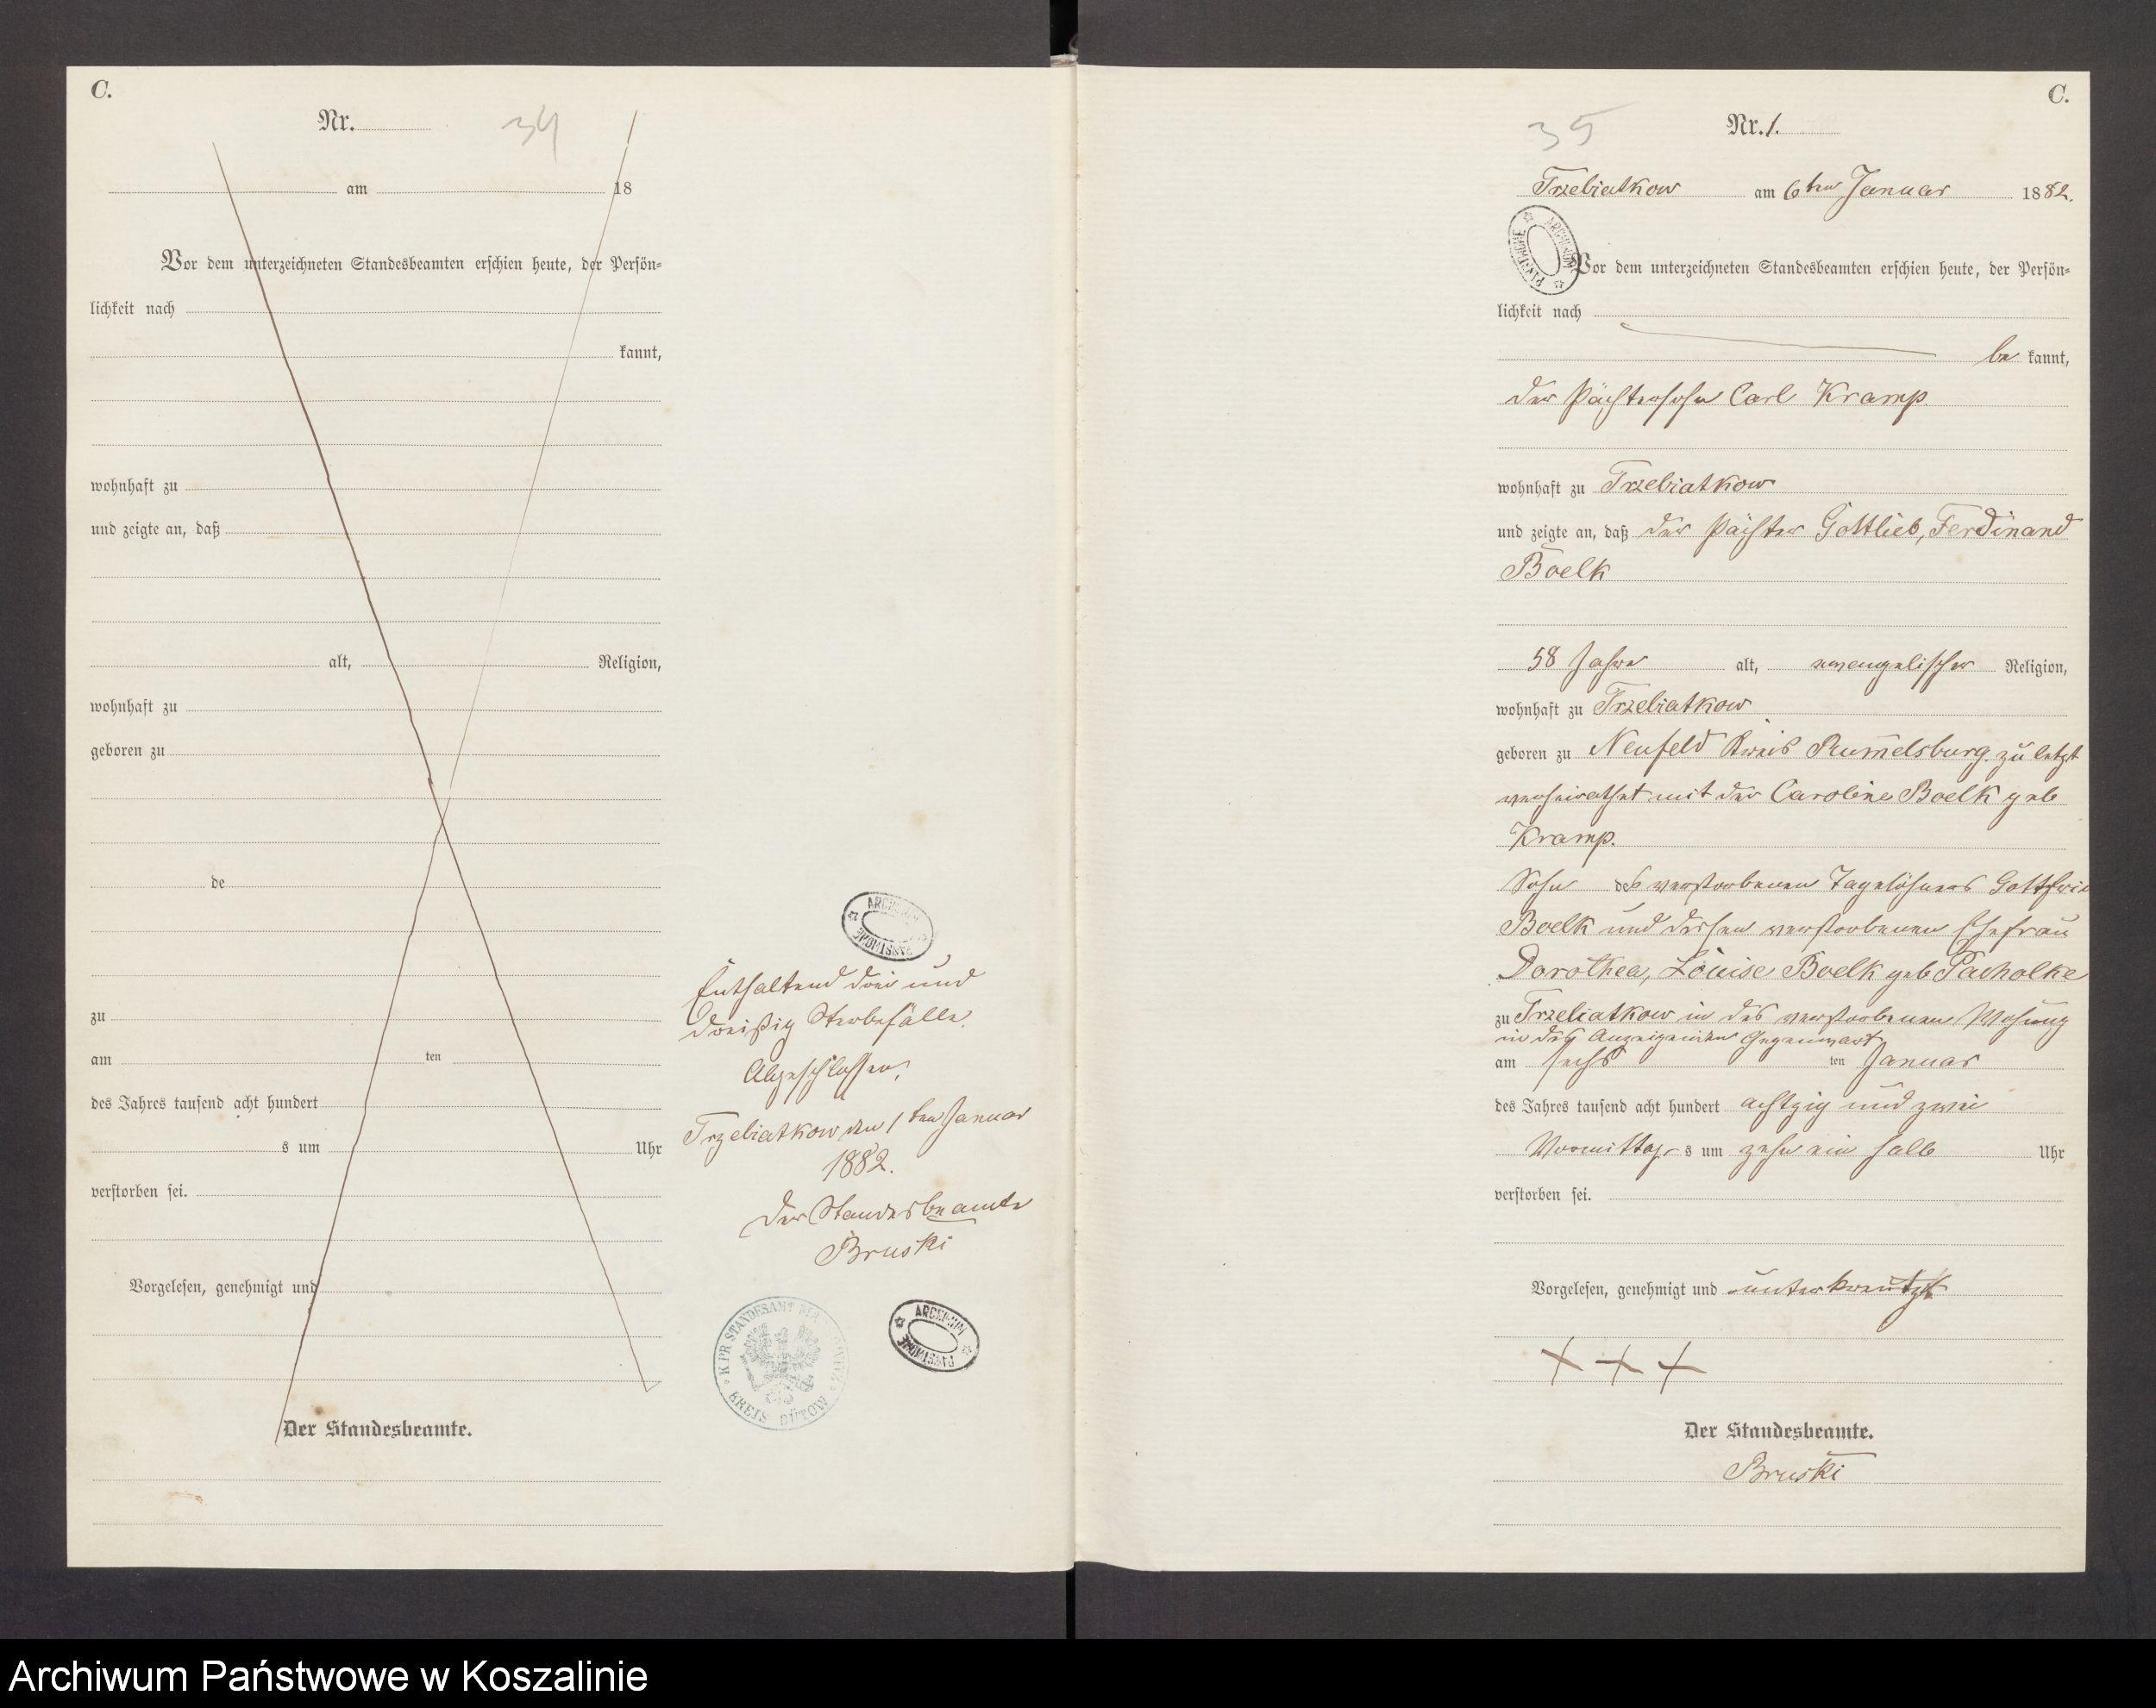 C.
Nr.
34
am 18
Vor dem unterzeichneten Standesbeamten erschien heute, der Persön=
lichkeit nach
kannt,
wohnhaft zu
und zeigte an, daß
alt, Religion,
wohnhaft zu
geboren zu
de
zu
am ten
des Jahres tausend acht hundert
s um Uhr
verstorben sei.
Vorgelesen, genehmigt und
Der Standesbeamte.
ARCHIWUM PAŃSTWOWE
Enthaltend drei und
dreißig Sterbefälle.
Abgeschlossen,
Trzebiatkow den 1ten Januar
1882.
Der Standesbeamte
Bruski
K PR STANDESAMT
KREIS BÜTOW
ARCHIWUM PAŃSTWOWE
C.
35
Nr. 1.
Trzebiatkow am 6ten Januar 1882.
ARCHIWUM PAŃSTWOWE
Vor dem unterzeichneten Standesbeamten erschien heute, der Persön=
lichkeit nach
be kannt,
der Pächtersohn Carl Kramp
wohnhaft zu Trzebiatkow
und zeigte an, daß der Pächter Gottlieb, Ferdinand
Boelk
58 Jahre alt, evangelischer Religion,
wohnhaft zu Trzebiatkow
geboren zu Neufeld Kreis Rummelsburg zuletzt
verheirathet mit der Caroline Boelk geb
Kramp.
Sohn des verstorbenen Tagelöhners
Boelk und dessen verstorbenen Ehefrau
Dorothea, Louise Boelk geb Pacholke
zu Trzebiatkow in des verstorbenen Wohung
in des Anzeigenden Gegenwart
am sechs ten Januar
des Jahres tausend acht hundert achtzig und zwei
Vormittag s um zehn ein halb Uhr
verstorben sei.
Vorgelesen, genehmigt und unterkreutzt
+ + +
Der Standesbeamte.
Bruski
Archiwum Państwowe w Koszalinie